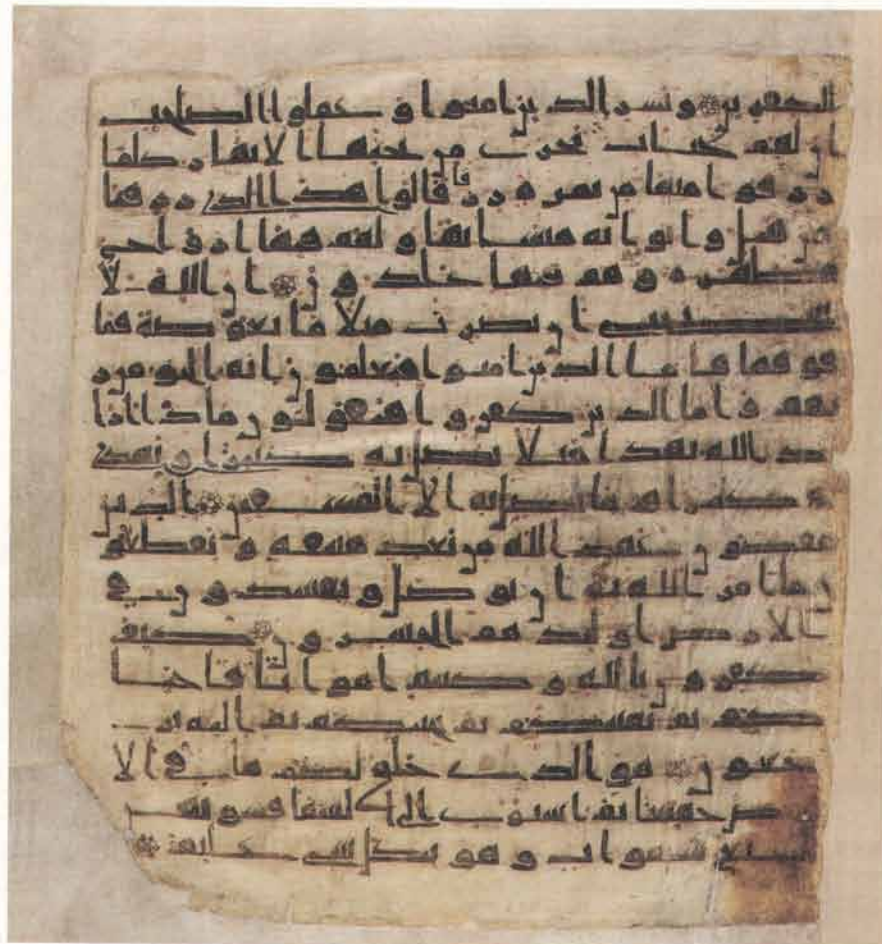 للكفرين وبشر الذين امنوا وعملوا الصلحت
ان لهم جنات تجري من تحتها الانهار كلما
رزقوا منها من ثمرة رزقا قالوا هذا الذي رزقنا
من قبل واتوا به متشابها ولهم فيها ازواج
مطهرة وهم فيها خلدون ان الله لا
يستحيي ان يضرب مثلا ما بعوضة فما
فوقها فاما الذين امنوا فيعلمون انه الحق من ر
بهم واما الذين كفروا فيقولون ماذا ارا
د الله بهذا مثلا يضل به كثيرا ويهدي
به كثيرا وما يضل به الا الفسقين الذين
ينقضون عهد الله من بعد ميثقه ويقطعو
ن ما امر الله به ان يوصل ويفسدون في
الارض اولئك هم الخسرون كيف
تكفرون بالله وكنتم امواتا فاحيا
كم ثم يميتكم ثم يحييكم ثم اليه تر
جعون هو الذي خلق لكم ما في الا
رض جميعا ثم استوى الى السما فسويهن
سبع سموات وهو بكل شي عليم